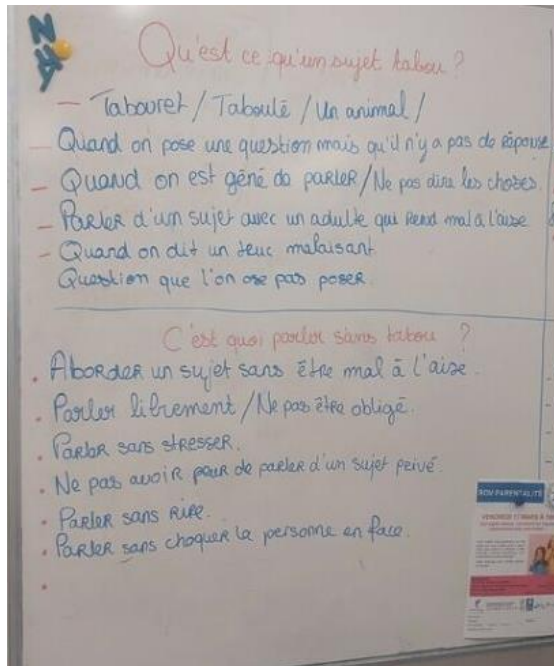 Qu'est ce qu'un sujet tabou ?
— Tabouret / Taboulé / Un animal /
— Quand on pose une question mais qu'il n'y a pas de réponse
— Quand on est gêné de parler / Ne pas dire les choses.
— Parler d'un sujet avec un adulte qui rend mal à l'aise
— Quand on dit un truc malaisant
Question que l'on ose pas poser.
C'est quoi parler sans tabou ?
. Aborder un sujet sans être mal à l'aise.
. Parler librement / Ne pas être obligé.
. Parler sans stresser.
. Ne pas avoir peur de parler d'un sujet privé.
. Parler sans rire.
. Parler sans choquer la personne en face.
RDV PARENTALITÉ